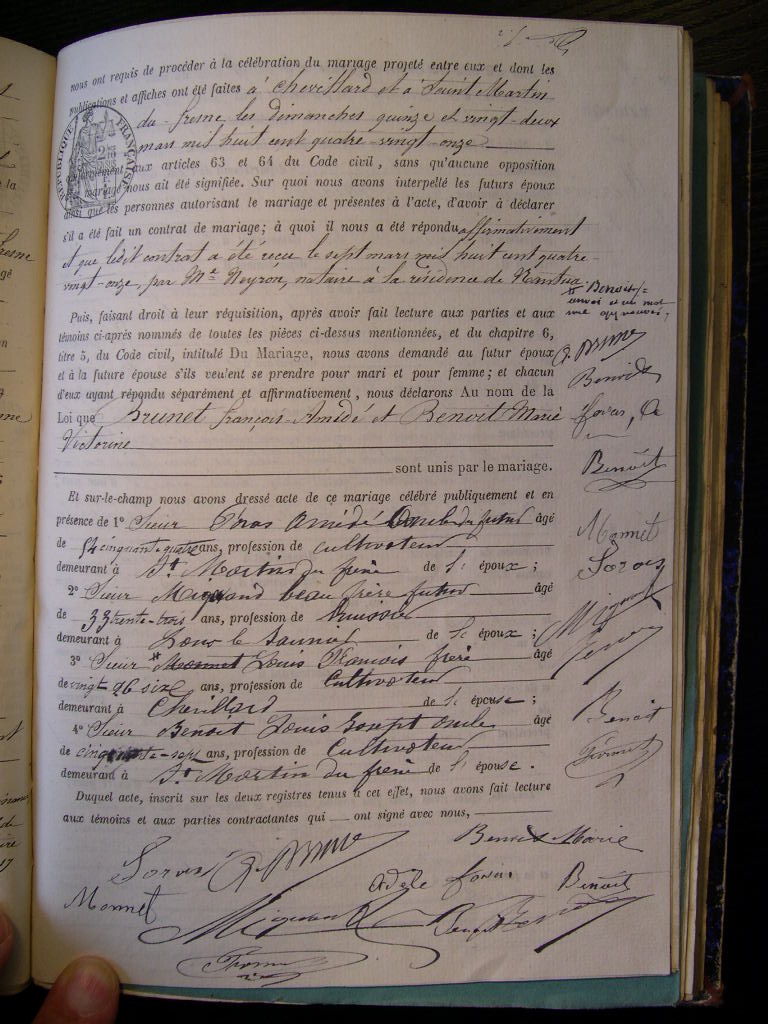 nous ont requis de procéder à la célébration du mariage projeté entre eux et dont les
publications et affiches ont été faites à Chevillard et à Saint Martin
du fresne les dimanches quinze et vingt-deux
mars mil huit cent quatre-vingt-onze
RÉPUBLIQUE FRANÇAISE
conformément aux articles 63 et 64 du Code civil, sans qu'aucune opposition
au mariage nous ait été signifiée. Sur quoi nous avons interpellé les futurs époux
ainsi que les personnes autorisant le mariage et présentes à l'acte, d'avoir à déclarer
s'il a été fait un contrat de mariage; à quoi il nous a été répondu affirmativement
et que ledit contrat a été reçu le sept mars mil huit cent quatre-
vingt-onze, par Me Neyron, notaire à la résidence de Nantua.
Benoit
renvoi et un mot
rayé approuvés
Puis, faisant droit à leur réquisition, après avoir fait lecture aux parties et aux
témoins ci-après nommés de toutes les pièces ci-dessus mentionnées, et du chapitre 6,
titre 5, du Code civil, intitulé Du Mariage, nous avons demandé au futur époux
et à la future épouse s'ils veulent se prendre pour mari et pour femme; et chacun
d'eux ayant répondu séparément et affirmativement, nous déclarons Au nom de la
Loi que Brunet françois-Amédé et Benoit Marie
Victorine
sont unis par le mariage.
Brunet
Benoit
Benoit
Monnet
Et sur-le-champ nous avons dressé acte de ce mariage célébré publiquement et en
présence de 1° Sieur Amédé oncle du futur âgé
de 54 cinquante-quatre ans, profession de cultivateur
demeurant à St Martin du frene de l'époux;
2° Sieur Migand beau frère futur âgé
de 33 trente-trois ans, profession de
demeurant à Lons le Saunier de l'époux;
3° Sieur Monnet Louis François frère âgé
de vingt six ans, profession de Cultivateur
demeurant à Chevillard de l'épouse;
4° Sieur Benoit Louis Joseph oncle âgé
de cinquante-sept ans, profession de Cultivateur
demeurant à St Martin du frene de l'épouse.
Benoit
Duquel acte, inscrit sur les deux registres tenus à cet effet, nous avons fait lecture
aux témoins et aux parties contractantes qui ont signé avec nous,
Brunet
Benoit Marie
Adèle
Benoit
Monnet